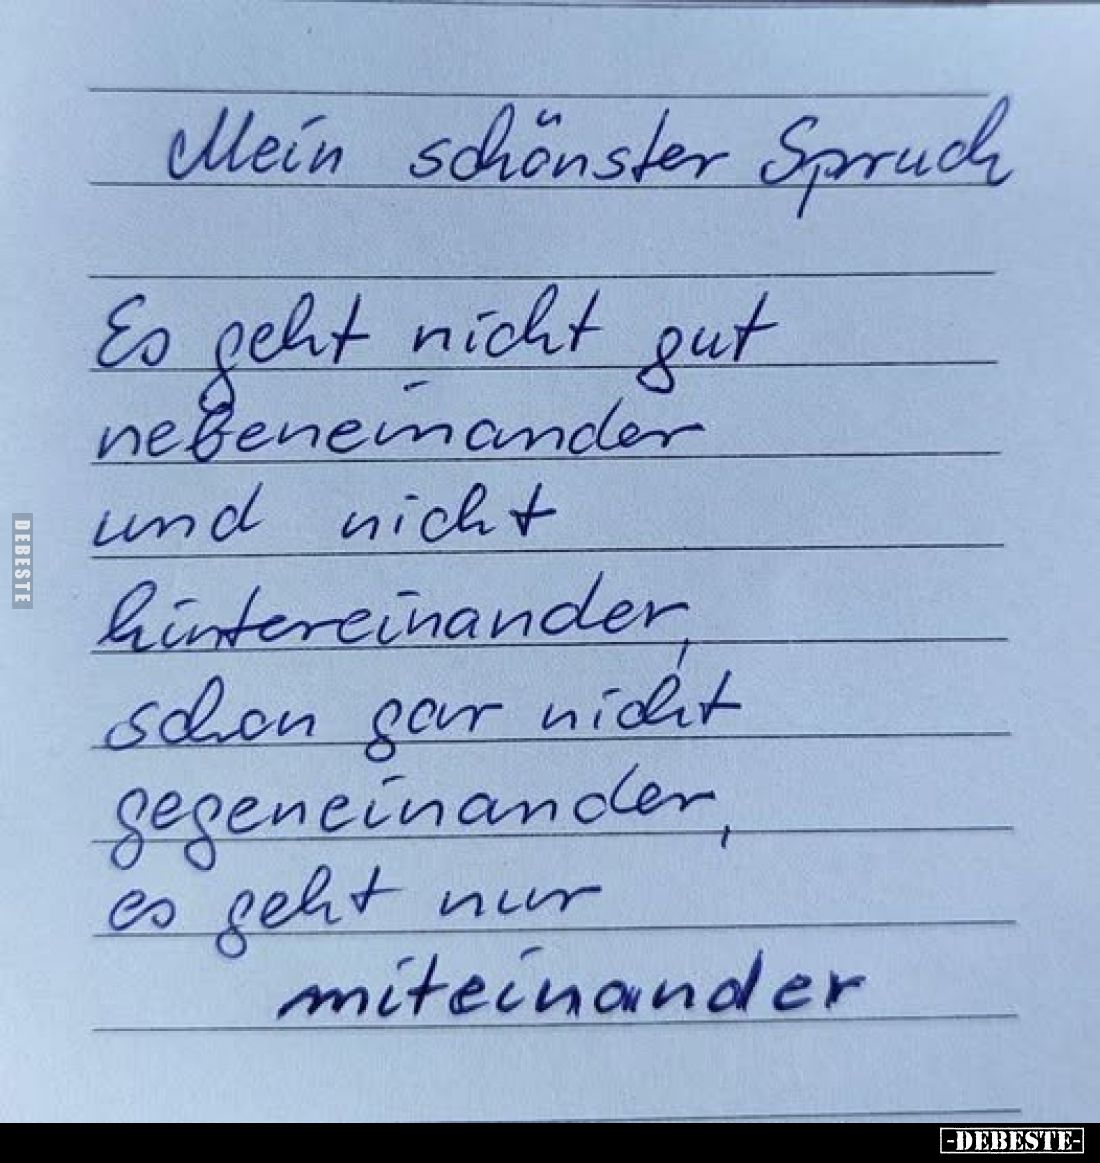 Mein schönster Spruch
Es geht nicht gut
nebeneinander
und nicht
hintereinander,
schon gar nicht
gegeneinander,
es geht nur
miteinander
DEBESTE
-DEBESTE-